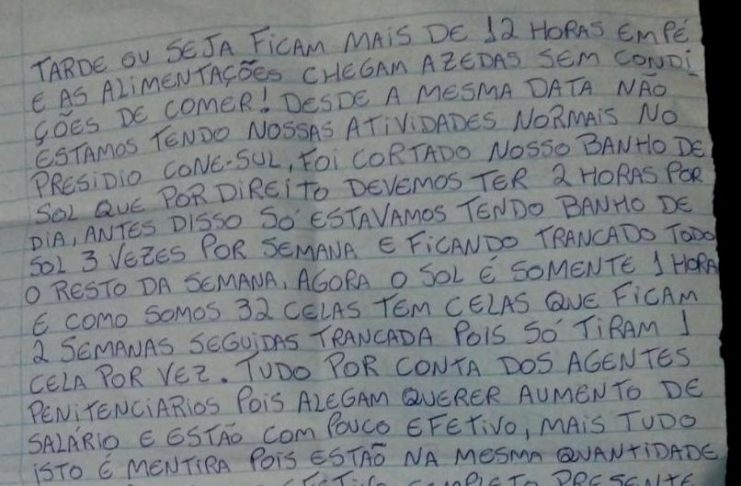 TARDE OU SEJA FICAM MAIS DE 12 HORAS EM PÉ
E AS ALIMENTAÇÕES CHEGAM AZEDAS SEM CONDI
ÇÕES DE COMER! DESDE A MESMA DATA NÃO
ESTAMOS TENDO NOSSAS ATIVIDADES NORMAIS NO
PRESIDIO CONE-SUL, FOI CORTADO NOSSO BANHO DE
SOL QUE POR DIREITO DEVEMOS TER 2 HORAS POR
DIA, ANTES DISSO SO ESTAVAMOS TENDO BANHO DE
SOL 3 VEZES POR SEMANA E FICANDO TRANCADO TODO
O RESTO DA SEMANA, AGORA O SOL É SOMENTE 1 HORA
E COMO SOMOS 32 CELAS TEM CELAS QUE FICAM
2 SEMANAS SEGUIDAS TRANCADA POIS SÓ TIRAM 1
CELA POR VEZ. TUDO POR CONTA DOS AGENTES
PENITENCIARIOS POIS ALEGAM QUERER AUMENTO DE
SALÁRIO E ESTÃO COM POUCO EFETIVO, MAIS TUDO
ISTO É MENTIRA POIS ESTÃO NA MESMA QUANTIDADE
COMPLETO PRESENTE